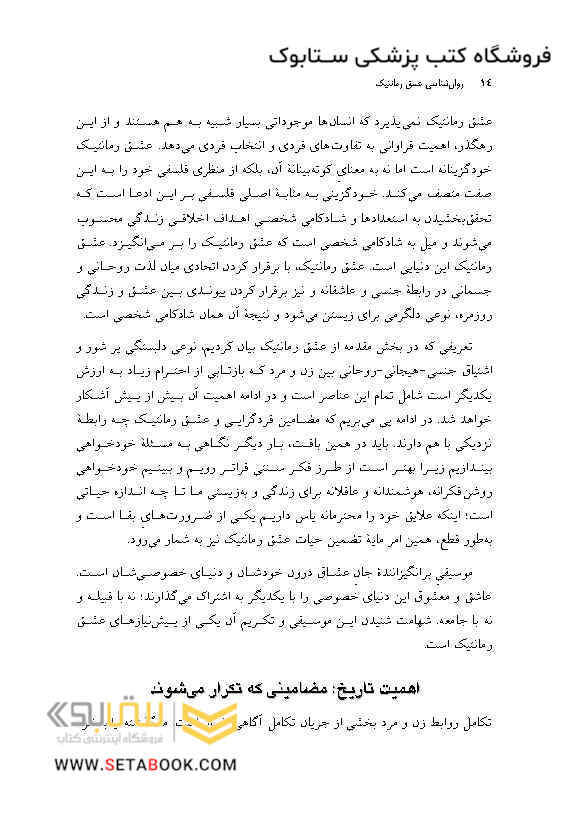 فروشگاه کتب پزشکی ستابوک
۱۴ روان‌شناسی عشق رمانتیک
عشق رمانتیک نمی‌پذیرد که انسان‌ها موجوداتی بسیار شبیه به هم هستند و از این
رهگذر، اهمیت فراوانی به تفاوت‌های فردی و انتخاب فردی می‌دهد. عشق رمانتیک
خودگزینانه است اما نه به معنای کوته‌بینانهٔ آن، بلکه از منظری فلسفی خود را به این
صفت متصف می‌کند. خودگزینی به مثابهٔ اصلی فلسفی بر این ادعا است که
تحقق‌بخشیدن به استعدادها و شادکامی شخصی اهداف اخلاقی زندگی محسوب
می‌شوند و میل به شادکامی شخصی است که عشق رمانتیک را بر می‌انگیزد. عشق
رمانتیک این دنیایی است. عشق رمانتیک، با برقرار کردن اتحادی میان لذت روحانی و
جسمانی در رابطهٔ جنسی و عاشقانه و نیز برقرار کردن پیوندی بین عشق و زندگی
روزمره، نوعی دلگرمی برای زیستن می‌شود و نتیجهٔ آن همان شادکامی شخصی است.
تعریفی که در بخش مقدمه از عشق رمانتیک بیان کردیم، نوعی دلبستگی پر شور و
اشتیاق جنسی-هیجانی-روحانی بین زن و مرد که بازتابی از احترام زیاد به ارزش
یکدیگر است شامل تمام این عناصر است و در ادامه اهمیت آن بیش از پیش آشکار
خواهد شد. در ادامه پی می‌بریم که مضامین فردگرایی و عشق رمانتیک چه رابطهٔ
نزدیکی با هم دارند. باید در همین بافت، بار دیگر نگاهی به مسئلهٔ خودخواهی
بیندازیم زیرا بهتر است از طرز فکر سنتی فراتر رویم و ببینیم خودخواهی
روشن‌فکرانه، هوشمندانه و عاقلانه برای زندگی و به‌زیستی ما تا چه اندازه حیاتی
است؛ اینکه علایق خود را محترمانه پاس داریم یکی از ضرورت‌های بقا است و
به‌طور قطع، همین امر مایهٔ تضمین حیات عشق رمانتیک نیز به شمار می‌رود.
موسیقی برانگیزانندهٔ جان عشاق درون خودشان و دنیای خصوصی‌شان است.
عاشق و معشوق این دنیای خصوصی را با یکدیگر به اشتراک می‌گذارند؛ نه با قبیله و
نه با جامعه. شهامت شنیدن این موسیقی و تکریم آن یکی از پیش‌نیازهای عشق
رمانتیک است.
اهمیت تاریخ: مضامینی که تکرار می‌شوند
تکامل روابط زن و مرد بخشی از جریان تکامل آگاهی
ستابوک
فروشگاه اینترنتی کتاب
WWW.SETABOOK.COM